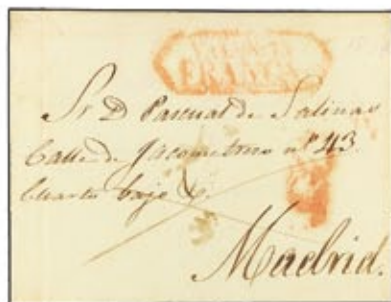 FRANCA
Sr D Pascual de Salinas
Calle de Jacometrezo nº 43.
Cuarto bajo
Madrid.